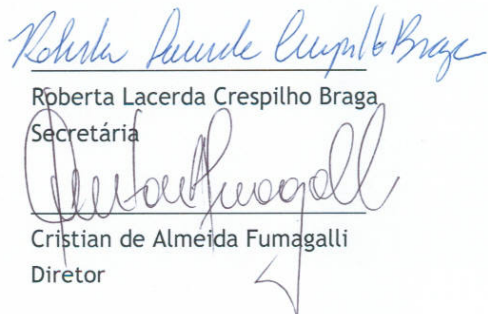 Roberta Lacerda Crespilho Braga
Roberta Lacerda Crespilho Braga
Secretária
Cristian de Almeida Fumagalli
Diretor